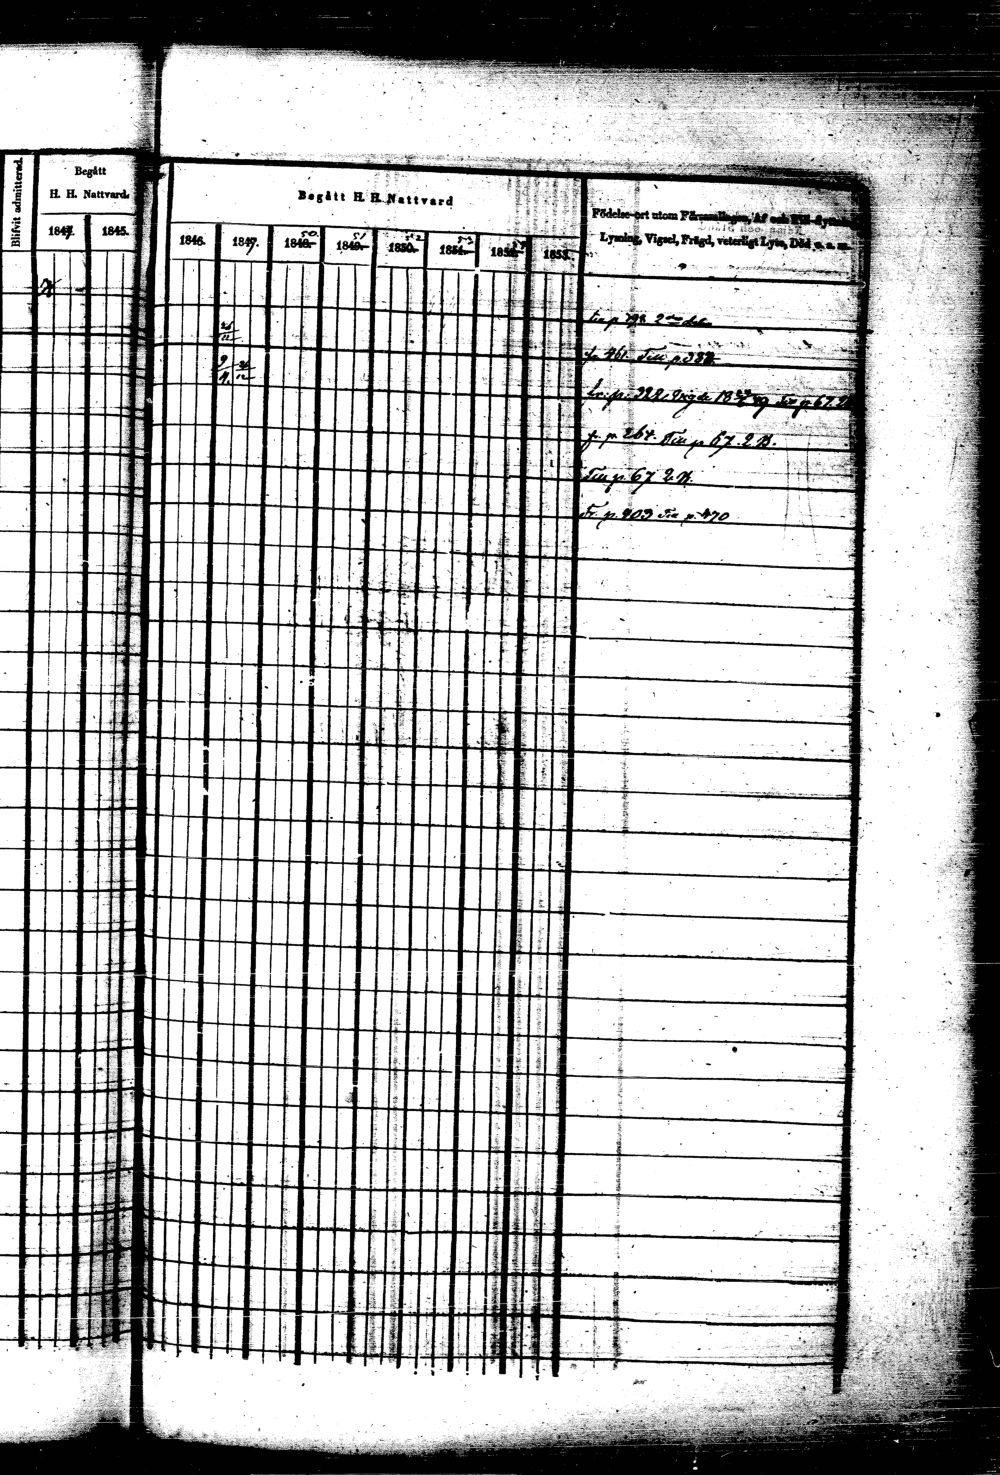 Blifvit admitterad.
Begått
H. H. Nattvard.
1844. 1845.
Begått H. H. Nattvard
1846. 1847. 1848. 1849. 1850. 1851. 1852. 1853.
50. 51 52 53
Födelse-ort utom Församlingen, Af och Till-flyttning,
Lysning, Vigsel, Frägd, veterligt Lyte, Död o. s. m.
26/12
Till p 198 2 dra del.
9/4 26/12
fr. 461. Till p. 388.
fr. p. 322. Vigde 18 49 Till p. 67. 2
fr. p. 264. Till p 67. 2 B.
Till p. 67 2.
Fr. p. 403 Till p. 470